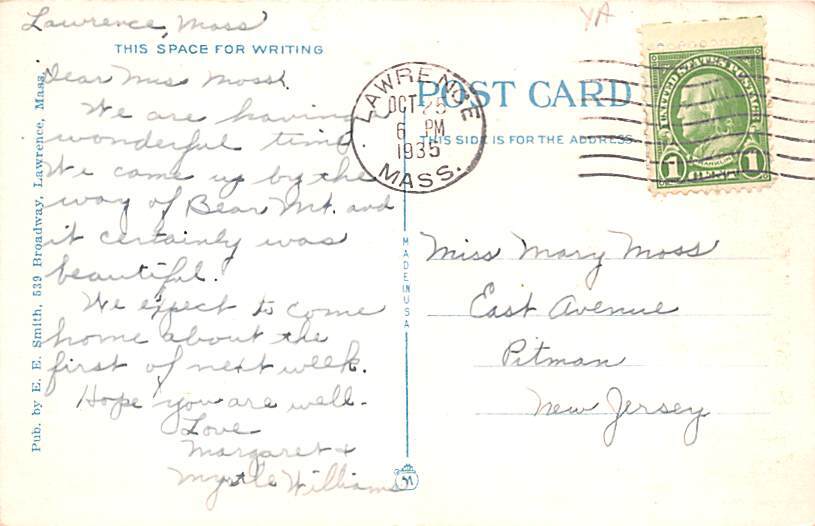 Lawrence, Mass
THIS SPACE FOR WRITING
Dear Miss Moss.
We are having
wonderful time.
We came up by the
way of Bear Mt. and
it certainly was
beautiful.
We expect to come
home about the
first of next week.
Hope you are well.
Love
Margaret &
Myrtle Williams
Pub. by E. E. Smith, 539 Broadway, Lawrence, Mass.
MADE IN USA
POST CARD
THIS SIDE IS FOR THE ADDRESS
LAWRENCE
OCT 25
6 PM
1935
MASS.
UNITED STATES POSTAGE
FRANKLIN
1 1
YA
Miss Mary Moss
East Avenue
Pitman
New Jersey